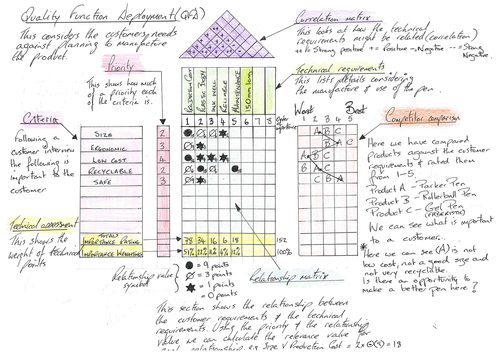 Quality Function Deployment (QFD)
This considers the customers needs
against planning to manufacture
the product.
Correlation matrix
This looks at how the technical
requirements might be related (correlation)
++ Strong positive + = Positive - = Negative -- = Strong
Negative.
Technical requirements
This lists details considering
the manufacture & use of the pen.
Priority
This shows how much
of a priority each
of the criteria is.
PLASTIC BODY
MAINTENANCE
150mm long
1 2 3 4 5 6 7 8
Worst Best
1 2 3 4 5
Competitor comparison
Criteria
Following a
customer interview
the following is
important to the
customer
SIZE 2
ERGONOMIC 3
LOW COST 4
RECYCLABLE 2
SAFE 3
Here we have compared
products against the customer
requirements & rated them
from 1-5.
Product A - Parker Pen
Product B - Rollerball Pen
Product C - Gel Pen
We can see what is important
to a customer...
* Here we can see (A) is not
low cost, not a good size and
not very recyclable.
Is there an opportunity to
make a better pen here?
Technical assessment
This shows the
weight of technical
points
IMPORTANCE RATING
38 34 16 6 18 152
100%
Relationship value
symbol
= 9 points
= 3 points
= 1 points
= 0 points
Relationship matrix
This section shows the relationship between
the customer requirements & the technical
requirements. Using the priority & the relationship
value we can calculate the relevance value for
each relationship. e.g Size V Production Cost = 2x (9) = 18